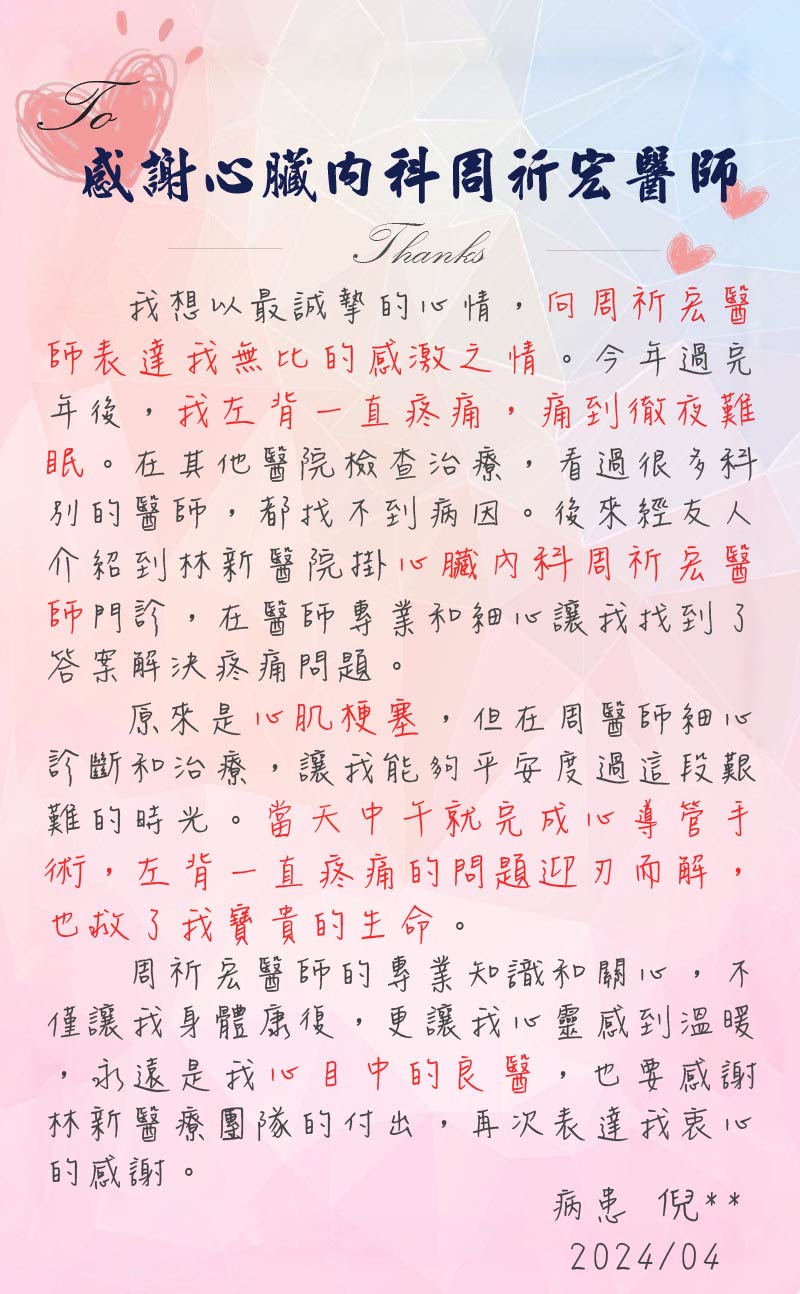 To
感謝心臟內科周祈宏醫師
Thanks
我想以最誠摯的心情，向周祈宏醫
師表達我無比的感激之情。今年過完
年後，我左背一直疼痛，痛到徹夜難
眠。在其他醫院檢查治療，看過很多科
別的醫師，都找不到病因。後來經友人
介紹到林新醫院掛心臟內科周祈宏醫
師門診，在醫師專業和細心讓我找到了
答案解決疼痛問題。
原來是心肌梗塞，但在周醫師細心
診斷和治療，讓我能夠平安度過這段艱
難的時光。當天中午就完成心導管手
術，左背一直疼痛的問題迎刃而解，
也救了我寶貴的生命。
周祈宏醫師的專業知識和關心，不
僅讓我身體康復，更讓我心靈感到溫暖
，永遠是我心目中的良醫，也要感謝
林新醫療團隊的付出，再次表達我衷心
的感謝。
病患 倪**
2024/04